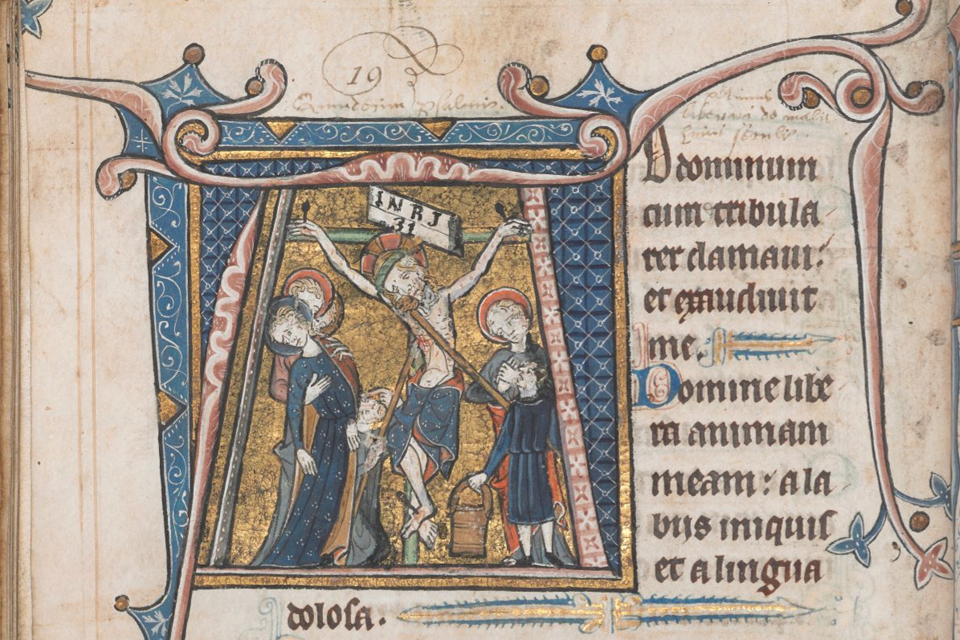 19
INRI
31
A dominum
cum tribula
rer clamaui:
et exaudiuit
me.
Domine libe
ra animam
meam: a la
bijs iniquis
et a lingua
dolosa.